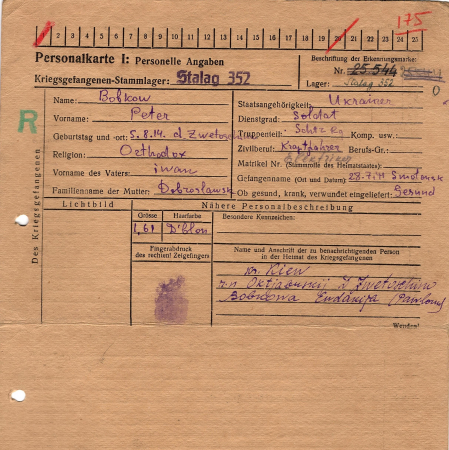 1 2 3 4 5 6 7 8 9 10 11 12 13 14 15 16 17 18 19 20 21 22 23 24 25
175
Personalkarte I: Personelle Angaben
Beschriftung der Erkennungsmarke:
Kriegsgefangenen-Stammlager: Stalag 352
Nr. 25544
Lager: Stalag 352
Des Kriegsgefangenen
R
Name: Bobkow
Staatsangehörigkeit: Ukrainer
Vorname: Peter
Dienstgrad: Soldat
Geburtstag und -ort: 5.8.14.
Truppenteil: Komp. usw.:
Religion: Orthodox
Zivilberuf: Kraftfahrer Berufs-Gr.:
Matrikel Nr. (Stammrolle des Heimatstaates):
Vorname des Vaters: iwan
Gefangennahme (Ort und Datum): Smolensk
Familienname der Mutter: Dobroslawsk
Ob gesund, krank, verwundet eingeliefert: Gesund
Lichtbild
Nähere Personalbeschreibung
Grösse
Haarfarbe
Besondere Kennzeichen:
1,61
D'blon
Fingerabdruck
des rechten! Zeigefingers
Name und Anschrift der zu benachrichtigenden Person
in der Heimat des Kriegsgefangenen
Kiew
Bobkowa
Wenden!